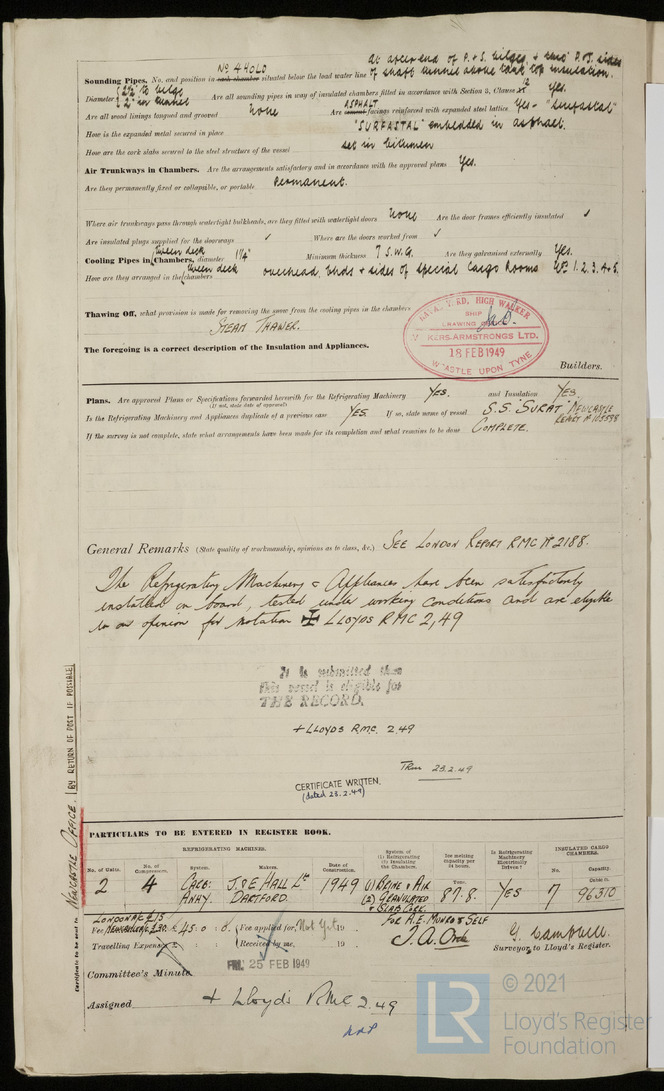 Nº 4 HOLD at after end of P. & S. bilges
Sounding Pipes. No. and position in cork chamber situated below the load water line of shaft tunnel above tank top insulation.
Diameter 2½" to bilge 2" in tunnel Are all sounding pipes in way of insulated chambers fitted in accordance with Section 3, Clause Yes.
Are all wood linings tongued and grooved None Are cement ASPHALT facings reinforced with expanded steel lattice Yes - "Surfastal"
How is the expanded metal secured in place "SURFASTAL" embedded in asphalt.
How are the cork slabs secured to the steel structure of the vessel set in bitumen
Air Trunkways in Chambers. Are the arrangements satisfactory and in accordance with the approved plans Yes.
Are they permanently fixed or collapsible, or portable Permanent.
Where air trunkways pass through watertight bulkheads, are they fitted with watertight doors None Are the door frames efficiently insulated ✓
Are insulated plugs supplied for the doorways ✓ Where are the doors worked from ✓
Cooling Pipes in tween deck Chambers, diameter 1¼" Minimum thickness 7 S.W.G. Are they galvanised externally Yes.
How are they arranged in the tween deck chambers overhead, ends & sides of Special Cargo Rooms Nos 1. 2. 3. 4 & 5.
Thawing Off, what provision is made for removing the snow from the cooling pipes in the chambers
STEAM THAWER.
NAVAL YARD, HIGH WALKER
SHIP
DRAWING
VICKERS-ARMSTRONGS LTD.
18 FEB 1949
NEWCASTLE UPON TYNE
The foregoing is a correct description of the Insulation and Appliances.
Builders.
Plans. Are approved Plans or Specifications forwarded herewith for the Refrigerating Machinery YES. and Insulation YES
(If not, state date of approval)
Is the Refrigerating Machinery and Appliances duplicate of a previous case YES. If so, state name of vessel S.S. "SURAT" NEWCASTLE REPORT Nº 105598
If the survey is not complete, state what arrangements have been made for its completion and what remains to be done COMPLETE.
General Remarks (State quality of workmanship, opinions as to class, &c.) SEE LONDON REPORT RMC Nº 2188.
The Refrigerating Machinery & Appliances have been satisfactorily
installed on board, tested under working conditions and are eligible
in our opinion for notation ✠ LLOYDS RMC 2,49
It is submitted that
this vessel is eligible for
THE RECORD.
+ LLOYDS R.M.C. 2.49
23.2.49
CERTIFICATE WRITTEN.
(dated 23.2.49)
Certificate to be sent to NEWCASTLE OFFICE. (BY RETURN OF POST IF POSSIBLE)
PARTICULARS TO BE ENTERED IN REGISTER BOOK.
REFRIGERATING MACHINES.
No. of Units. No. of Compressors. System. Makers. Date of Construction. System of (1) Refrigerating (2) Insulating the Chambers. Ice melting capacity per 24 hours. Is Refrigerating Machinery Electrically Driven? INSULATED CARGO CHAMBERS. No. Capacity.
Tons. Cubic ft.
2 4 CARB: ANHY. J. & E. HALL Ld DARTFORD. 1949 (1) BRINE & AIR (2) GRANULATED & SLAB CORK 87.8. YES 7 96310
LONDON £15
Fee NEWCASTLE £30 £45 : 0 : 0. Fee applied for, Not Yet 19
FOR H.E. MUNRO & SELF
Travelling Expenses £ : : Received by me, 19
G. Campbell.
Surveyor to Lloyd's Register.
FRI. 25 FEB 1949
Committee's Minute
Assigned + Lloyd's RMC 2.49
LR
© 2021
Lloyd's Register
Foundation